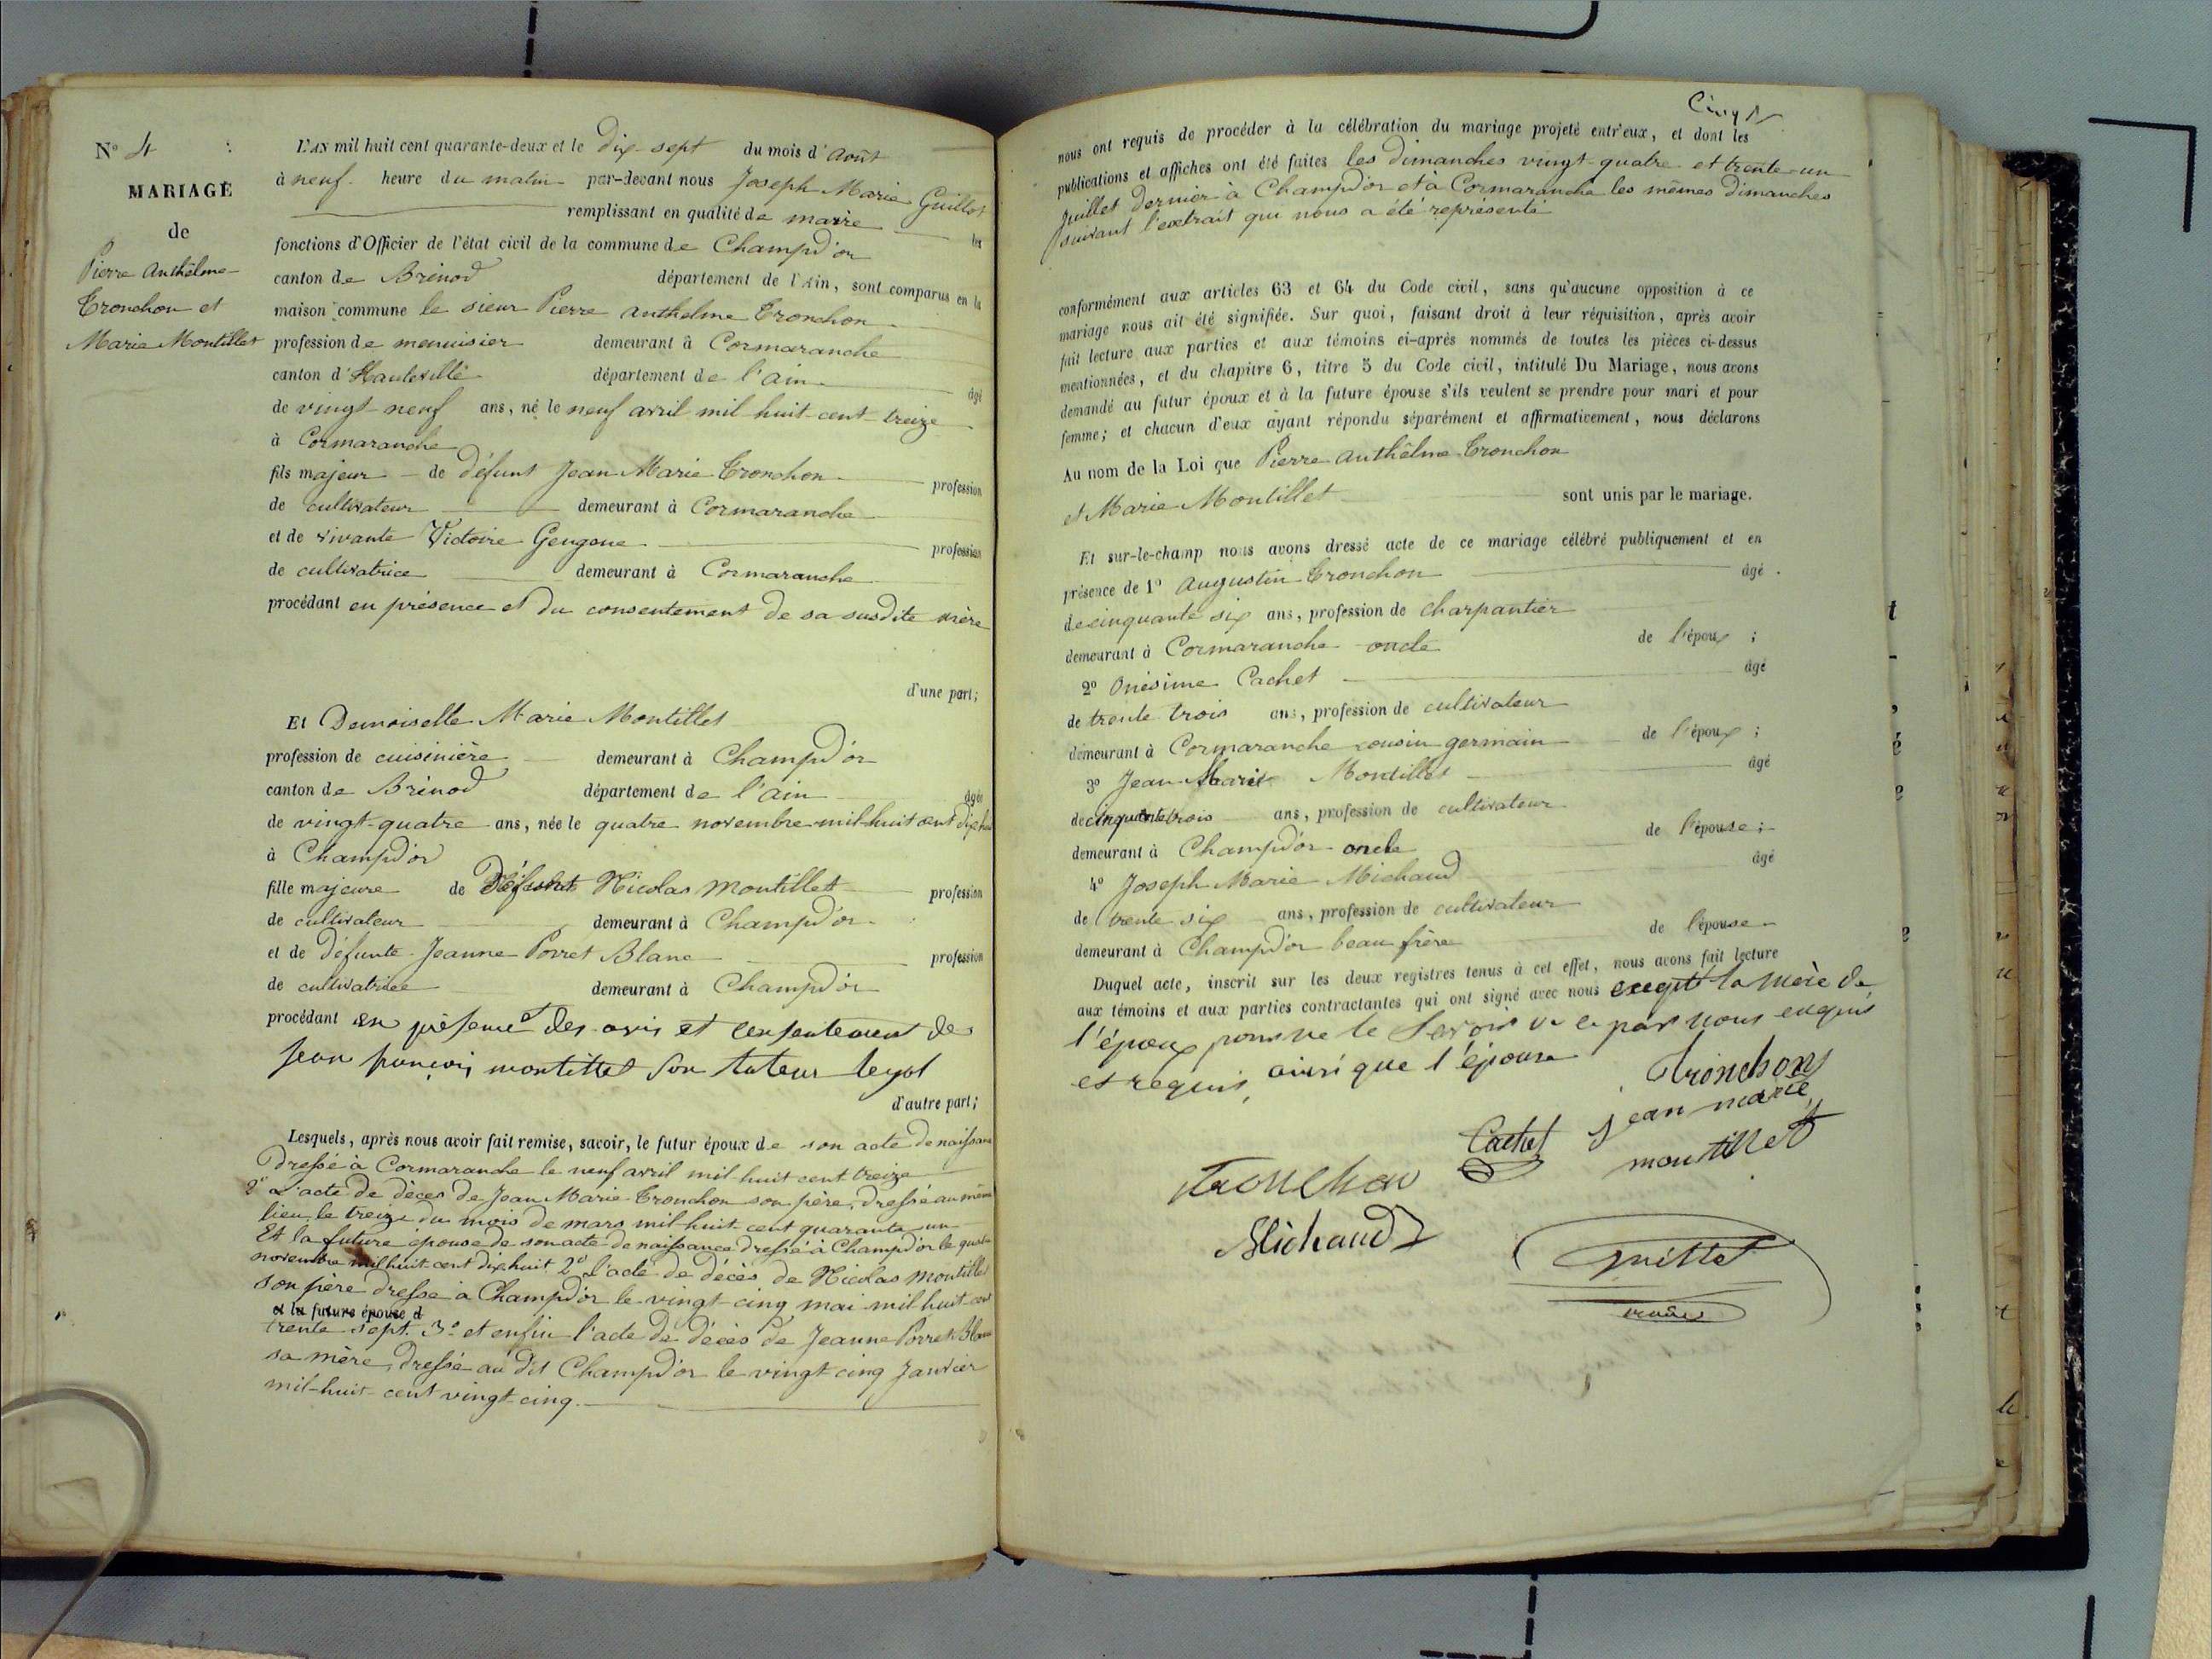 N° 4
MARIAGE
de
Pierre Anthêlme
Tronchon et
Marie Montillet
L'AN mil huit cent quarante-deux et le dix-sept du mois d'Août
à neuf heure du matin par-devant nous Joseph Marie Guillot
remplissant en qualité de maire les
fonctions d'Officier de l'état civil de la commune de Champd'or
canton de Brénod département de l'Ain, sont comparus en la
maison commune le sieur Pierre Anthelme Tronchon
profession de menuisier demeurant à Cormaranche
canton d'Hauteville département de l'ain âgé
de vingt-neuf ans, né le neuf avril mil huit-cent-treize
à Cormaranche
fils majeur de défunt Jean Marie Tronchon profession
de cultivateur demeurant à Cormaranche
et de vivante Victoire Gengoue profession
de cultivatrice demeurant à Cormaranche
procédant en présence et du consentement de sa susdite mère
d'une part;
Et Demoiselle Marie Montillet
profession de cuisinière demeurant à Champd'or
canton de Brénod département de l'ain âgée
de vingt-quatre ans, née le quatre novembre mil-huit cent dix huit
à Champd'or
fille majeure de Défunt Nicolas Montillet profession
de cultivateur demeurant à Champd'or
et de défunte Jeanne Porret Blanc profession
de cultivatrice demeurant à Champd'or
procédant en présence des avis et consentement de
Jean françois montillet son tuteur legal
d'autre part;
Lesquels, après nous avoir fait remise, savoir, le futur époux de son acte de naissance
dressé à Cormaranche le neuf avril mil-huit cent treize
2° L'acte de décès de Jean Marie Tronchon son père, dressé au même
lieu le treize du mois de mars mil-huit cent quarante un
Et la future épouse de son acte de naissance dressé à Champd'or le quatre
novembre mil huit cent dix huit 2° L'acte de décès de Nicolas Montillet
son père dressé à Champd'or le vingt-cinq mai mil huit cent
et la future épouse d
trente sept. 3° et enfin l'acte de décès de Jeanne Porret Blanc
sa mère, dressé au dit Champd'or le vingt cinq Janvier
mil-huit-cent vingt-cinq.
Cinq
nous ont requis de procéder à la célébration du mariage projeté entr'eux, et dont les
publications et affiches ont été faites les dimanches vingt-quatre et trente-un
juillet dernier à Champd'or et à Cormaranche les mêmes dimanches
suivant l'extrait qui nous a été représenté
conformément aux articles 63 et 64 du Code civil, sans qu'aucune opposition à ce
mariage nous ait été signifiée. Sur quoi, faisant droit à leur réquisition, après avoir
fait lecture aux parties et aux témoins ci-après nommés de toutes les pièces ci-dessus
mentionnées, et du chapitre 6, titre 5 du Code civil, intitulé Du Mariage, nous avons
demandé au futur époux et à la future épouse s'ils veulent se prendre pour mari et pour
femme; et chacun d'eux ayant répondu séparément et affirmativement, nous déclarons
Au nom de la Loi que Pierre Anthêlme Tronchon
et Marie Montillet sont unis par le mariage.
Et sur-le-champ nous avons dressé acte de ce mariage célébré publiquement et en
présence de 1° Augustin Tronchon âgé
de cinquante six ans, profession de charpantier
demeurant à Cormaranche oncle de l'époux ;
2° Onésime Cachet âgé
de trente trois ans, profession de cultivateur
demeurant à Cormaranche cousin germain de l'époux ;
3° Jean Marie Montillet âgé
de cinquante trois ans, profession de cultivateur
demeurant à Champd'or oncle de l'épouse ;
4° Joseph Marie Michaud âgé
de trente six ans, profession de cultivateur
demeurant à Champd'or beau frère de l'épouse
Duquel acte, inscrit sur les deux registres tenus à cet effet, nous avons fait lecture
aux témoins et aux parties contractantes qui ont signé avec nous excepté la mère de
l'époux pour ne le savoir de ce par nous enquis
et requis, ainsi que l'épouse
Tronchon
Cachet jean marie
Tronchon montillet
Michaud
Guillot
maire